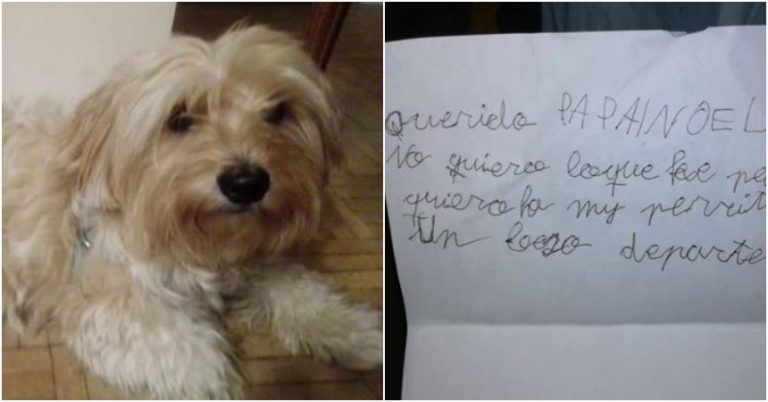 Querido PAPAINOEL
No quiero loque fae pe
quiero a my perrit
Un beso departe